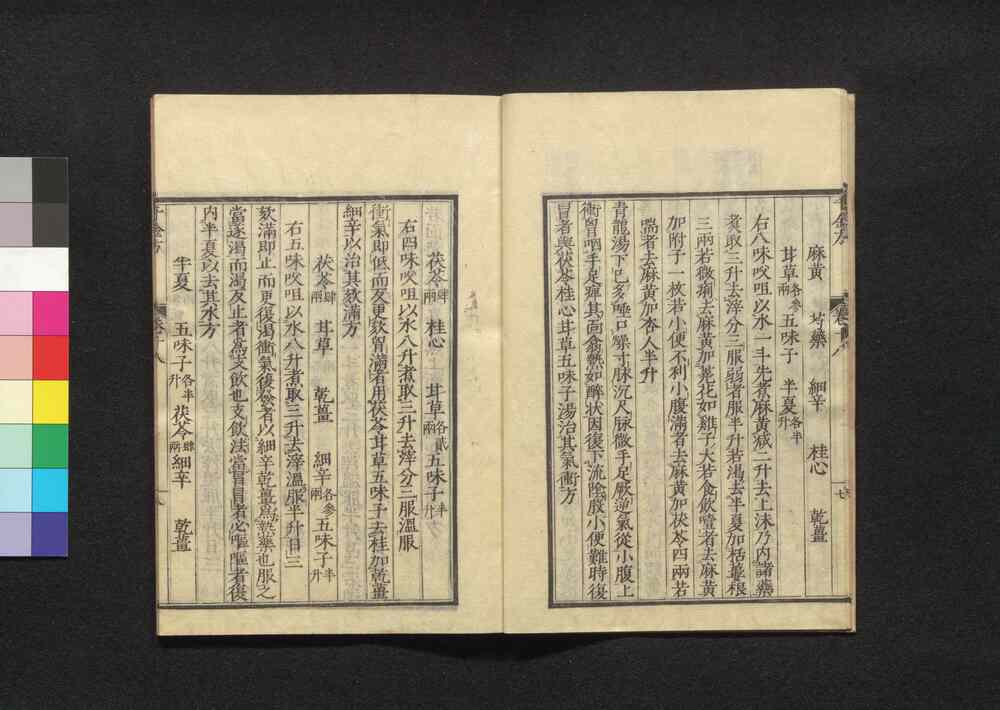 麻黃 芍藥 細辛 桂心 乾薑
甘草各參兩五味子 半夏各半升
右八味㕮咀以水一斗先煮麻黃減二升去上沫乃內諸藥
煑取三升去滓分三服弱者服半升若渴去半夏加栝蔞根
三兩若微痢去麻黃加蕘花如雞子大若食飲噎者去麻黃
加附子一枚若小便不利小腹滿者去麻黃加茯苓四兩若
喘者去麻黃加杏人半升
青龍湯下已多唾口𤍜寸脉沉尺脉微手足厥逆氣從小腹上
衝胷咽手足痺其面翕熱如醉狀因復下流陰股小便難時復
冒者與茯苓桂心甘草五味子湯治其氣衝方
茯苓肆兩 桂心 甘草各貳兩五味子半升
右四味㕮咀以水八升煮取三升去滓分三服溫服
衝氣即低而反更欬胷滿者用茯苓甘草五味子去桂加乾薑
細辛以治其欬滿方
茯苓肆兩 甘草 乾薑 細辛各參兩五味子半升
右五味㕮咀以水八升煮取三升去滓溫服半升日三
欬滿即止而更復渴衝氣復發者以細辛乾薑爲熱藥也服之
當逐渴而渴反止者爲支飲也支飲法當冒冒者必嘔嘔者復
內半夏以去其水方
半夏 五味子各半升 茯苓肆兩細辛 乾薑